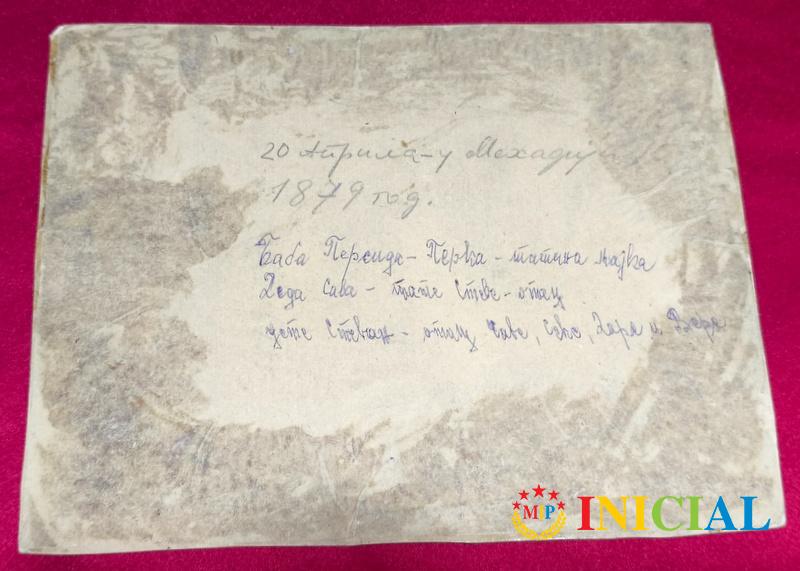 20 Априла-у Мехадиј
1879 год.
Баба Персида - Перка - татина мајка
Деда Сава - тате Стеве - отац
дете Стеван - отац Саве, Секе, Даре и Вере
MIP INICIAL